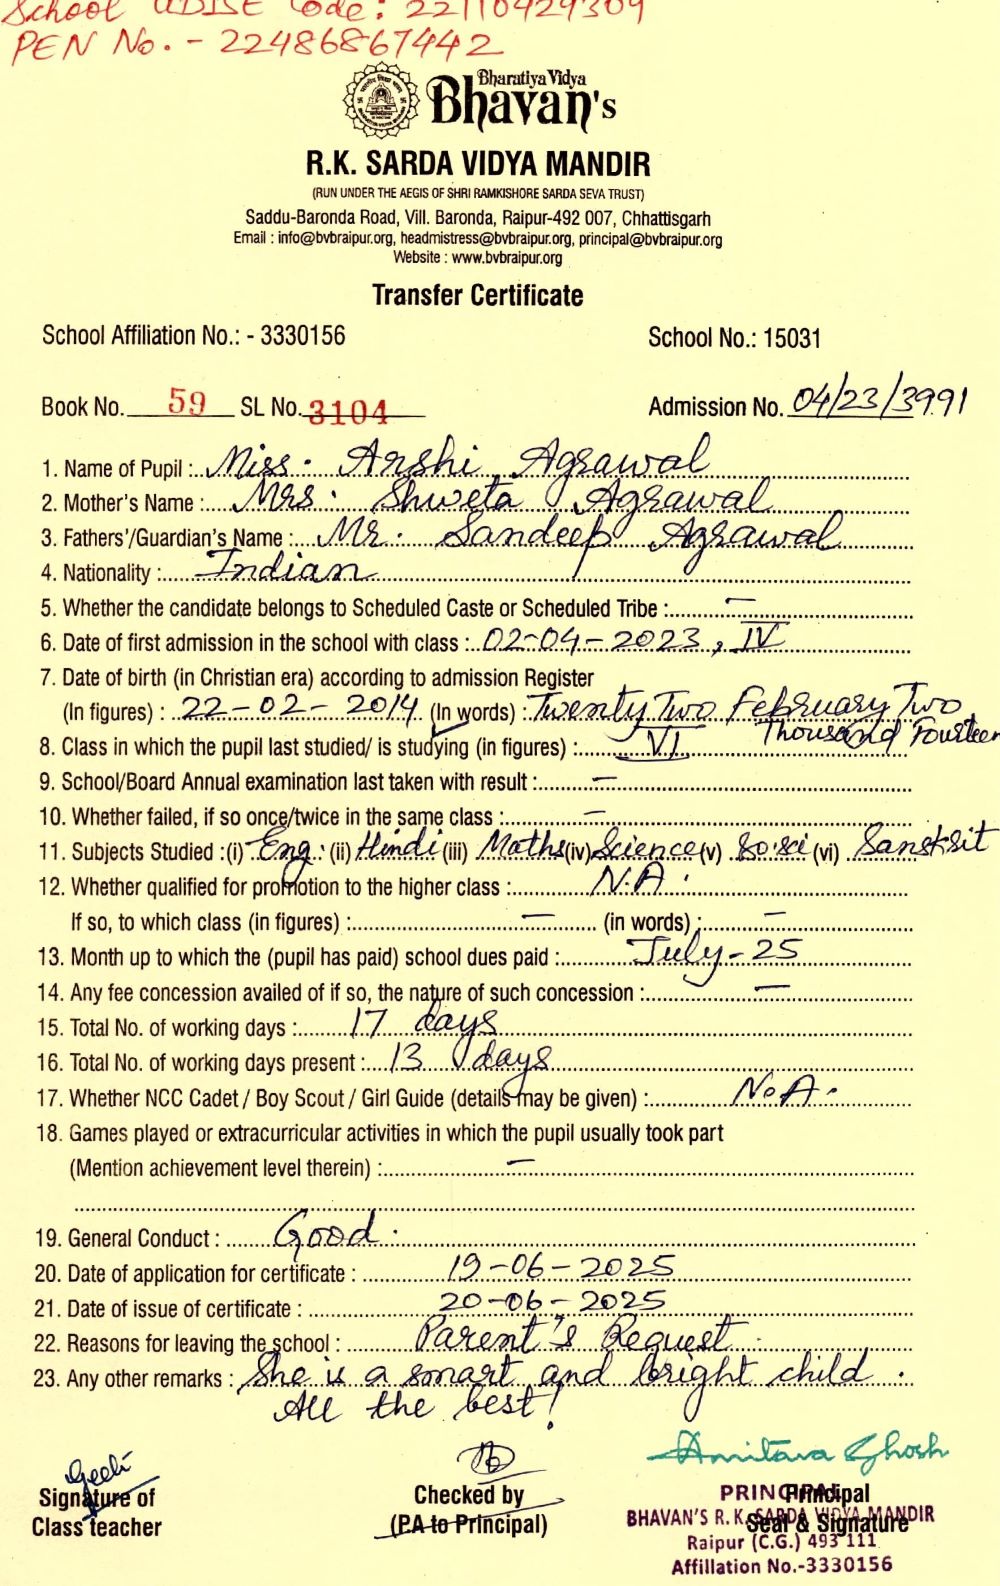 School UDISE Code: 22110429309
PEN No. - 22486867442
Bharatiya Vidya
Bhavan's
R.K. SARDA VIDYA MANDIR
(RUN UNDER THE AEGIS OF SHRI RAMKISHORE SARDA SEVA TRUST)
Saddu-Baronda Road, Vill. Baronda, Raipur-492 007, Chhattisgarh
Email : info@bvbraipur.org, headmistress@bvbraipur.org, principal@bvbraipur.org
Website : www.bvbraipur.org
Transfer Certificate
School Affiliation No.: - 3330156 School No.: 15031
Book No. 59 SL No. 3104 Admission No. 04/23/3991
1. Name of Pupil : Miss. Arshi Agrawal
2. Mother's Name : Mrs. Shweta Agrawal
3. Fathers'/Guardian's Name : Mr. Sandeep Agrawal
4. Nationality : Indian
5. Whether the candidate belongs to Scheduled Caste or Scheduled Tribe : —
6. Date of first admission in the school with class : 02-04-2023, IV
7. Date of birth (in Christian era) according to admission Register
(In figures) : 22-02-2014 (In words) : Twenty Two February Two
Thousand Fourteen
8. Class in which the pupil last studied/ is studying (in figures) : VI
9. School/Board Annual examination last taken with result : —
10. Whether failed, if so once/twice in the same class : —
11. Subjects Studied :(i) Eng. (ii) Hindi (iii) Maths (iv) Science (v) So.sci (vi) Sanskrit
12. Whether qualified for promotion to the higher class : N.A.
If so, to which class (in figures) : — (in words) : —
13. Month up to which the (pupil has paid) school dues paid : July-25
14. Any fee concession availed of if so, the nature of such concession : —
15. Total No. of working days : 17 days
16. Total No. of working days present : 13 days
17. Whether NCC Cadet / Boy Scout / Girl Guide (details may be given) : N.A.
18. Games played or extracurricular activities in which the pupil usually took part
(Mention achievement level therein) : —
19. General Conduct : Good.
20. Date of application for certificate : 19-06-2025
21. Date of issue of certificate : 20-06-2025
22. Reasons for leaving the school : Parent's Request.
23. Any other remarks : She is a smart and bright child.
All the best!
Amitava Ghosh
Signature of Checked by Principal
Class teacher (PA to Principal) Seal & Signature
PRINCIPAL
BHAVAN'S R.K. SARDA VIDYA MANDIR
Raipur (C.G.) 493 111
Affillation No.-3330156